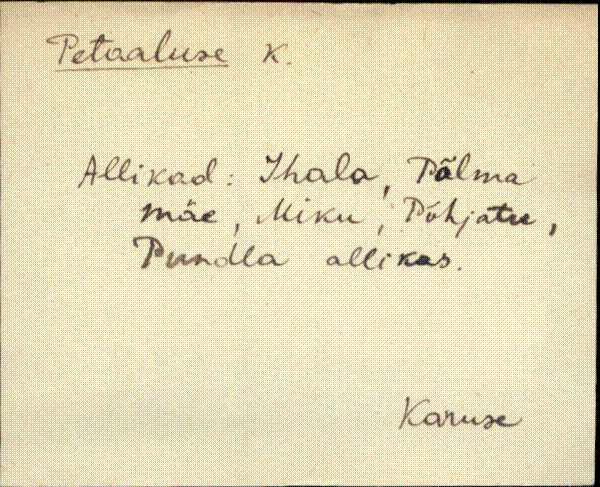 Petaaluse K.
Allikad: Ihala, Põlma
mäe, Miku, Põhjatu,
Pundla allikas.
Karuse